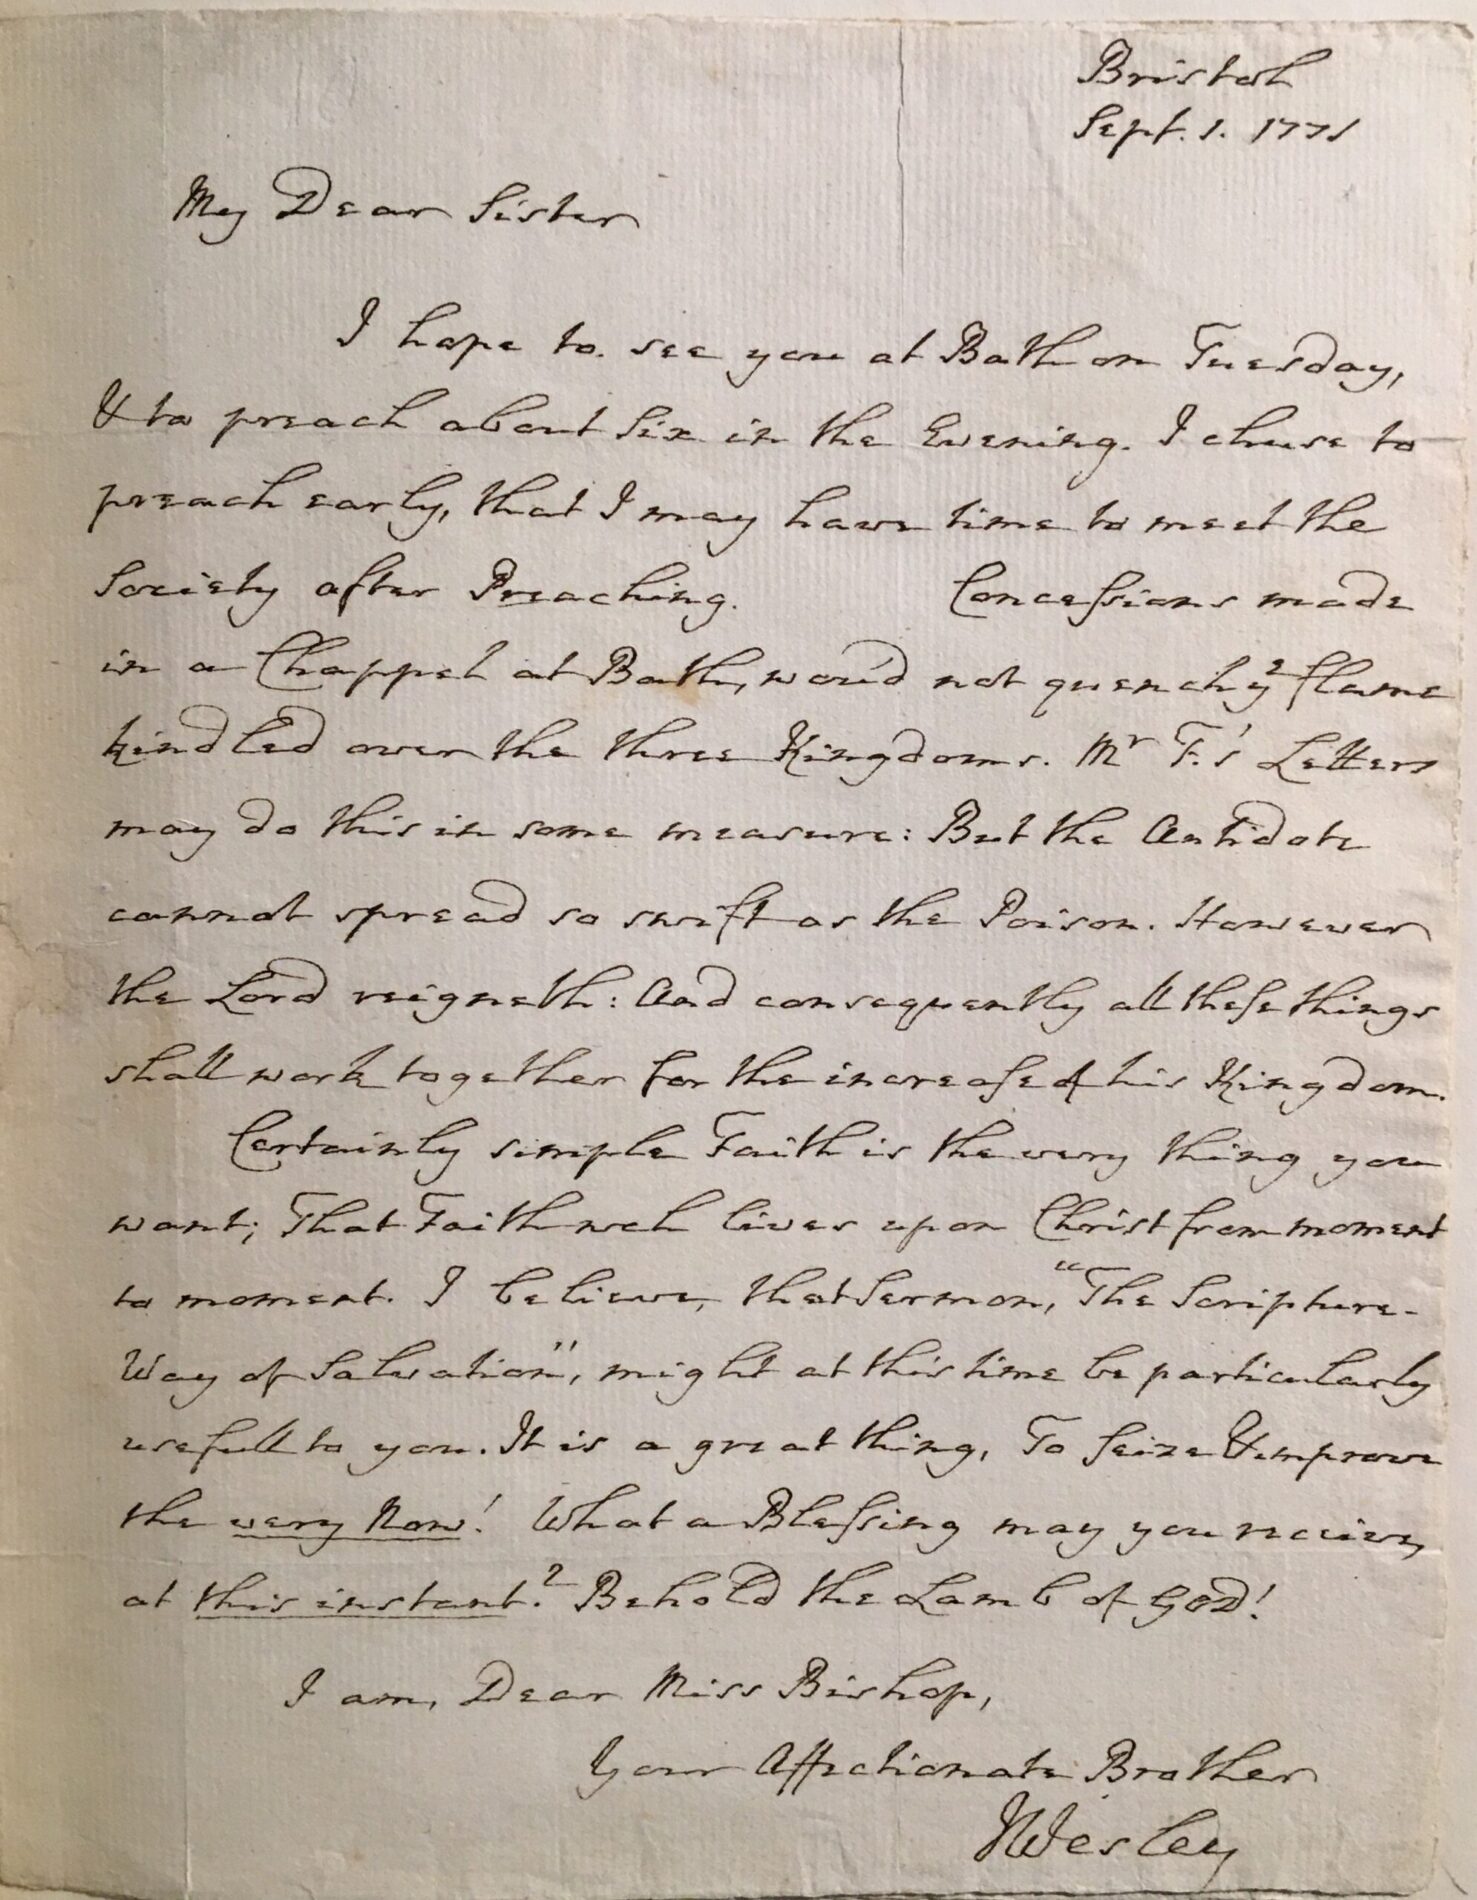 Bristol
Sept. 1. 1771
My Dear Sister
I hope to see you at Bath on Tuesday,
& to preach about Six in the Evening. I chuse to
preach early, that I may have time to meet the
Society after Preaching. Concessions made
in a Chappel at Bath, wou'd not quench yᵉ flame
kindled over the three Kingdoms. Mʳ F.'s Letters
may do this in some measure: But the Antidote
cannot spread so swift as the Poison. However
the Lord reigneth: And consequently all these things
shall work together for the increase of his Kingdom.
Certainly simple Faith is the very thing you
want; That Faith wch lives upon Christ from moment
to moment. I believe, that Sermon, "The Scripture-
Way of Salvation", might at this time be particularly
usefull to you. It is a great thing, To seize & improve
the very Now! What a Blessing may you receive,
at this instant? Behold the Lamb of GOD!
I am, Dear Miss Bishop,
Your Affectionate Brother
JWesley